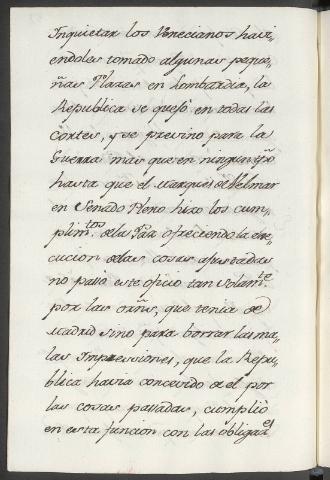 Inquietar los Venecianos havi-
endoles tomado algunas peque-
ñas Plazas en Lombardia, la
Republica se quejó en todas las
Cortes, y se previno para la
Guerra mas que en ningun tpõ
hasta que el Marques de Velmar
en Senado Pleno hizo los cum-
plim.tos de la Paz ofreciendo la exe-
cucion de las cosas ajustadas
no passó este oficio tan Solam.te
por las orñs, que tenia de
Madrid sino para borrar las ma-
las Impressiones, que la Repu-
blica havia concevido de el por
las cosas passadas, cumplió
en esta funcion con las obligaz.es